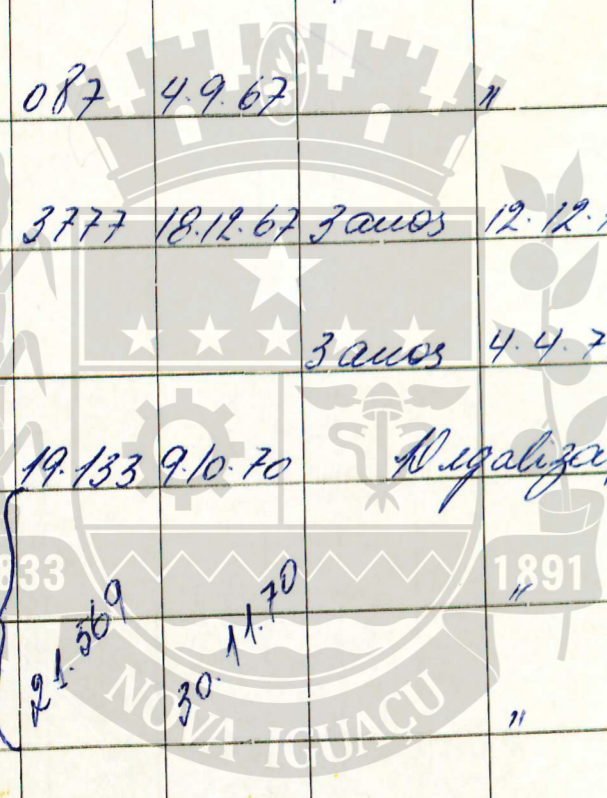 087 4.9.67 "
3777 18.12.67 3 anos 12.12.
3 anos 4.4.7
19.133 9.10.70
833 1891
21.569 30.11.70 "
NOVA IGUAÇU "